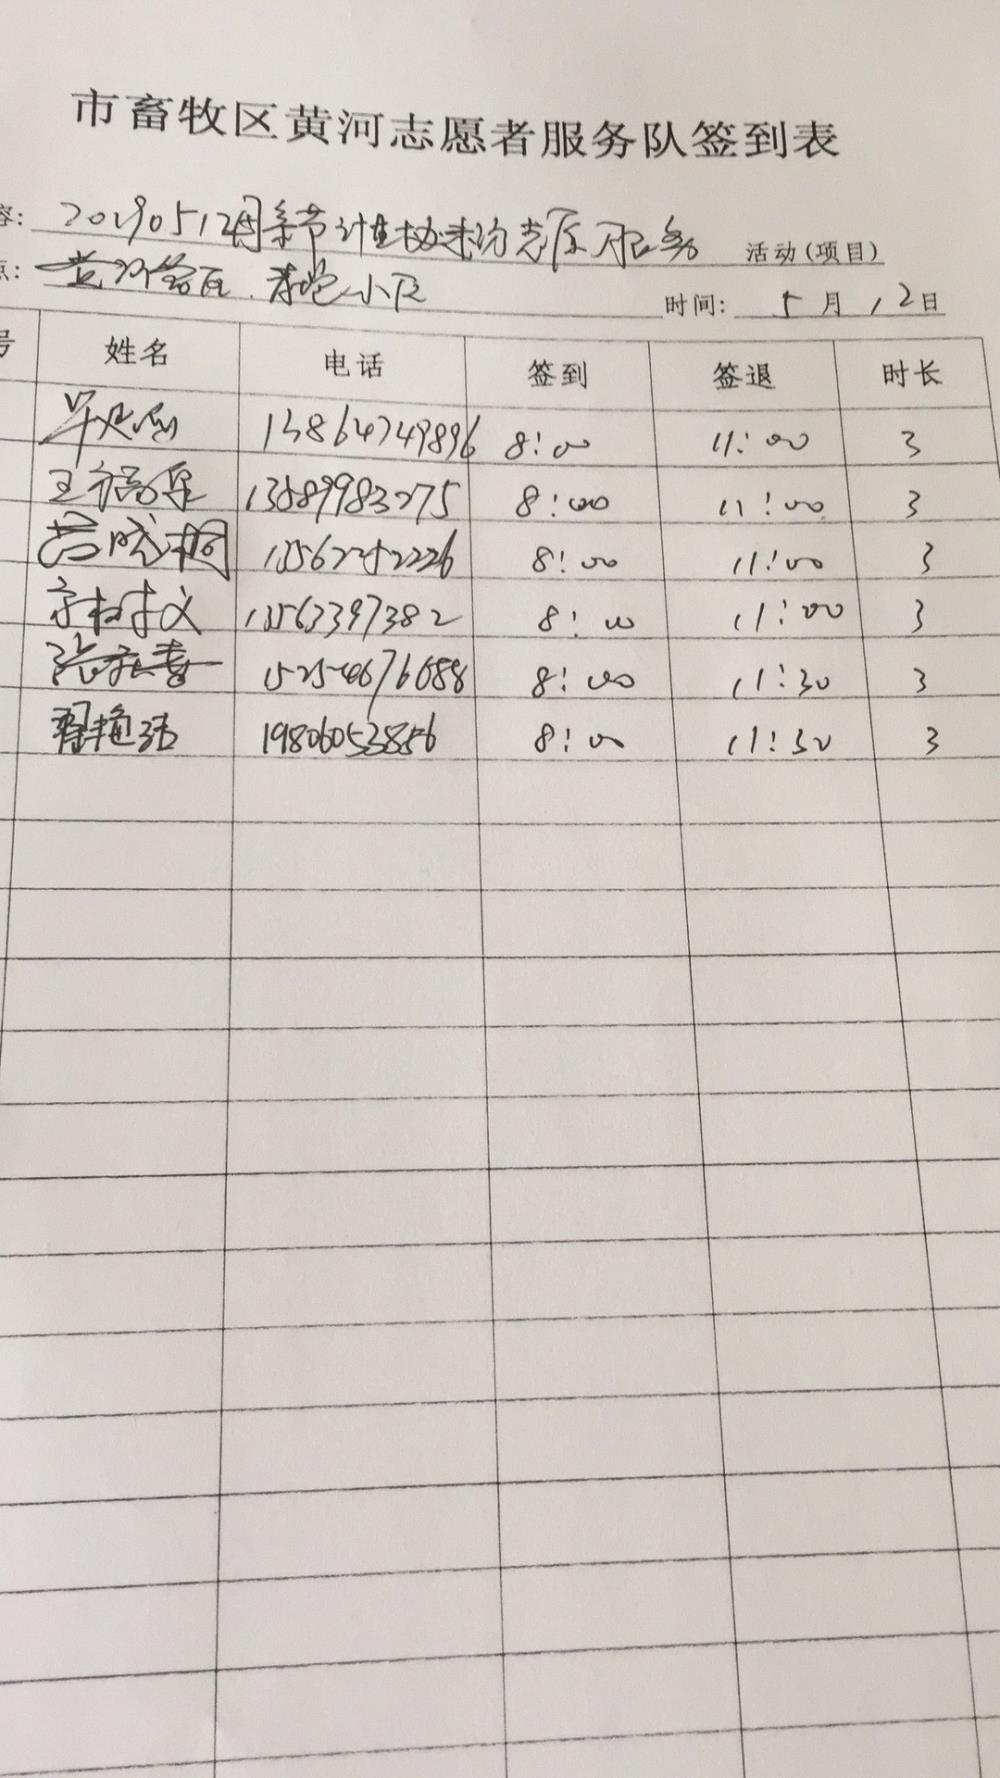 市畜牧区黄河志愿者服务队签到表
容: 20190512母亲节计生协来访志愿服务 活动(项目)
点: 小区 时间: 5月12日
号 姓名 电话 签到 签退 时长
13864749896 8:00 11:00 3
王福泉 13589983275 8:00 11:00 3
13562252226 8:00 11:00 3
13563397382 8:00 11:00 3
15254676688 8:00 11:30 3
翟艳 19806053856 8:00 11:30 3